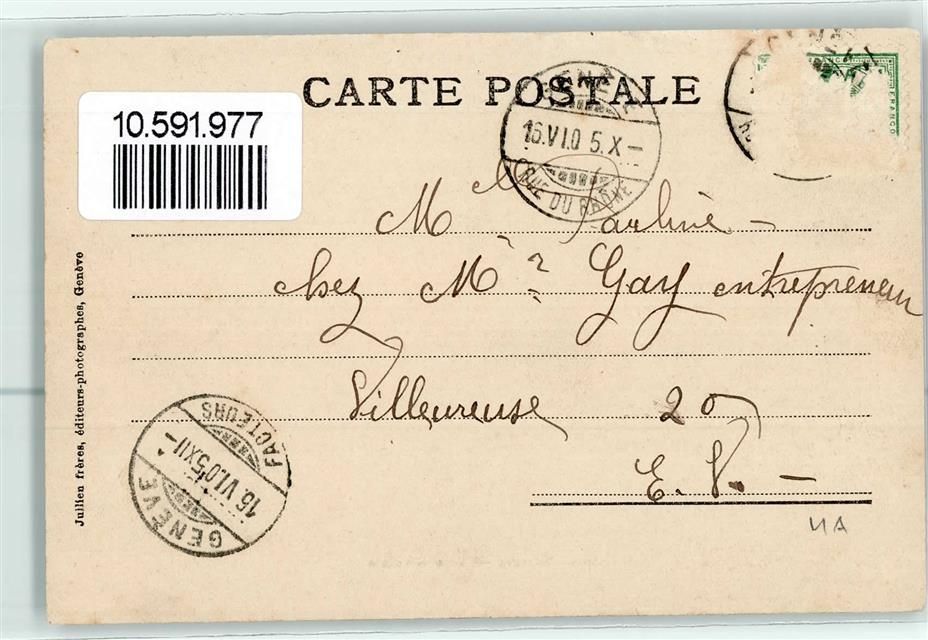 CARTE POSTALE
10.591.977
FRANCO
GENÈVE
16.VI.05.X–
RUE DU RHÔNE
M
chez Mr Gay entrepreneur
Villereuse 20
E. V. –
Jullien frères, éditeurs-photographes, Genève
FACTEURS
16.VI.05XII–
GENÈVE